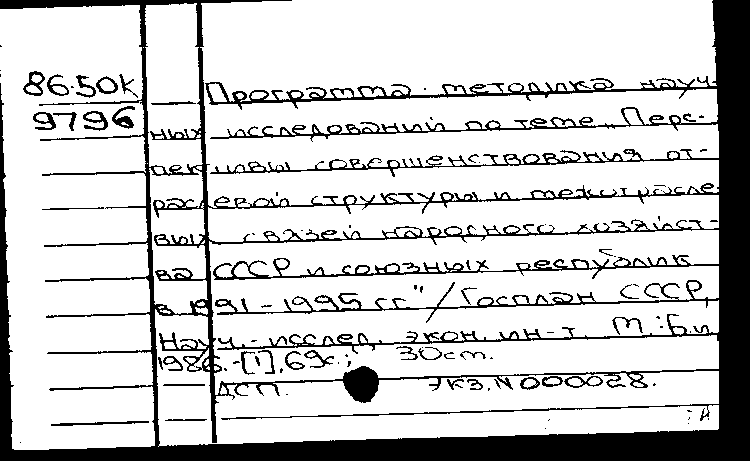 86-50к Программа-методика науч-
9796 ных исследований по теме „Перс-
пективы совершенствования от-
раслевой структуры и межотрасле
вых связей народного хозяйст-
ва СССР и союзных республик
в 1991-1995 гг."/Госплан СССР,
Науч.-исслед. экон. ин-т. М.: Б.и.,
1986.-[1], 69с.; 30см.
ДСП. экз. N 000028.